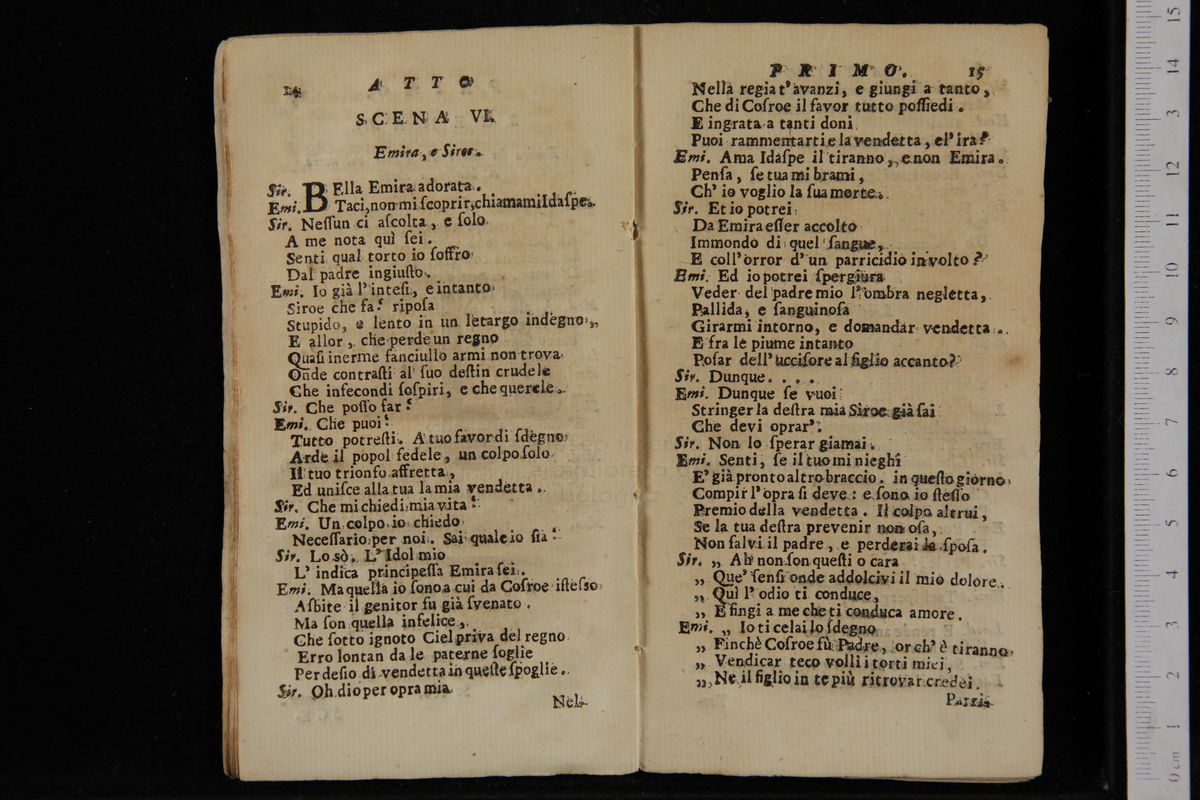 14 ATTO
SCENA VI.
Emira, e Siroe.
Sir. BElla Emira adorata.
Emi. Taci, non mi ſcoprir, chiamami Idaſpe.
Sir. Neſſun ci aſcolta, e ſolo
A me nota quì ſei.
Senti qual torto io ſoffro
Dal padre ingiuſto.
Emi. Io già l'inteſi, e intanto
Siroe che fa? ripoſa
Stupido, e lento in un letargo indegno,
E allor, che perde un regno
Quaſi inerme fanciullo armi non trova
Onde contraſti al ſuo deſtin crudele
Che infecondi ſoſpiri, e che querele.
Sir. Che poſſo far?
Emi. Che puoi?
Tutto potreſti. A tuo favor di ſdegno
Arde il popol fedele, un colpo ſolo
Il tuo trionfo affretta,
Ed uniſce alla tua la mia vendetta.
Sir. Che mi chiedi mia vita?
Emi. Un colpo io chiedo
Neceſſario per noi. Sai quale io ſia?
Sir. Lo sò. L'Idol mio
L' indica principeſſa Emira ſei.
Emi. Ma quella io ſono a cui da Coſroe iſteſso
Aſbite il genitor fu già ſvenato.
Ma ſon quella infelice,
Che ſotto ignoto Ciel priva del regno
Erro lontan da le paterne ſoglie
Per deſio di vendetta in queſte ſpoglie.
Sir. Oh dio per opra mia
Nel-
PRIMO. 15
Nella regia t'avanzi, e giungi a tanto,
Che di Coſroe il favor tutto poſſiedi.
E ingrata a tanti doni
Puoi rammentarti e la vendetta, e l'ira?
Emi. Ama Idaſpe il tiranno, e non Emira.
Penſa, ſe tua mi brami,
Ch' io voglio la ſua morte.
Sir. Et io potrei
Da Emira eſſer accolto
Immondo di quel ſangue,
E coll'orror d'un parricidio involto?
Emi. Ed io potrei ſpergiura
Veder del padre mio l'ombra negletta,
Pallida, e ſanguinoſa
Girarmi intorno, e domandar vendetta.
E fra le piume intanto
Poſar dell'uccifore al figlio accanto?
Sir. Dunque....
Emi. Dunque ſe vuoi
Stringer la deſtra mia Siroe già ſai
Che devi oprar.
Sir. Non lo ſperar giamai.
Emi. Senti, ſe il tuo mi nieghi
E' già pronto altro braccio. in queſto giorno
Compir l'opra ſi deve: e ſono io ſteſſo
Premio della vendetta. Il colpo altrui,
Se la tua deſtra prevenir non oſa,
Non ſalvi il padre, e perderai la ſpoſa.
Sir. „ Ah non ſon queſti o cara
„ Que' ſenſi onde addolcivi il mio dolore.
„ Quì l' odio ti conduce,
„ E fingi a me che ti conduca amore.
Emi. „ Io ti celai lo ſdegno
„ Finchè Coſroe fù Padre, or ch' è tiranno
„ Vendicar teco volli i torti miei,
„ Ne il figlio in te più ritrovar credei.
Parri-